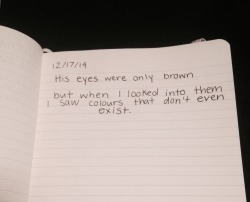 12/17/14
His eyes were only brown
but when I looked into them
I saw colours that don't even
exist.